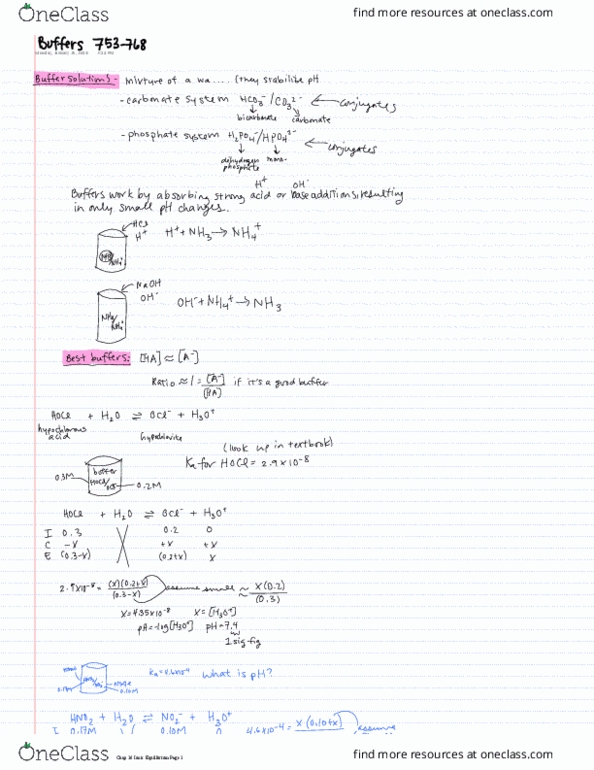 OneClass
find more resources at oneclass.com
Buffers 753-768
Buffer solutions - mixture of a wa.... (they stabilize pH
- carbonate system HCO₃⁻/CO₃²⁻ conjugates
bicarbonate carbonate
- phosphate system H₂PO₄⁻/HPO₄²⁻ conjugates
dihydrogen phosphate mono-
H⁺ OH⁻
Buffers work by absorbing strong acid or base additions, resulting
in only small pH changes.
HCl
H⁺
H⁺ + NH₃ → NH₄⁺
NaOH
OH⁻
NH₃/
NH₄⁺
OH⁻ + NH₄⁺ → NH₃
Best buffers: [HA] ≈ [A⁻]
Ratio ≈ 1 = [A⁻]/[HA] if it's a good buffer
HOCl + H₂O ⇌ OCl⁻ + H₃O⁺
hypochlorous acid hypochlorite
(look up in textbook)
Ka for HOCl = 2.9×10⁻⁸
0.3M buffer HOCl/OCl⁻ 0.2M
HOCl + H₂O ⇌ OCl⁻ + H₃O⁺
I 0.3 0.2 0
C -x +x +x
E (0.3-x) (0.2+x) x
2.9×10⁻⁸ = (x)(0.2+x)/(0.3-x) assume small ≈ x(0.2)/(0.3)
x = 4.35×10⁻⁸ x = [H₃O⁺]
pH = -log[H₃O⁺] pH = 7.4
1 sig fig
0.17M 0.10M Ka = 4.6×10⁻⁴ What is pH?
HNO₂ + H₂O ⇌ NO₂⁻ + H₃O⁺
I 0.17M 0.10M 0 4.6×10⁻⁴ = x(0.10+x) assume
OneClass
Chap 16 Ionic Equilibrium Page 1
find more resources at oneclass.com